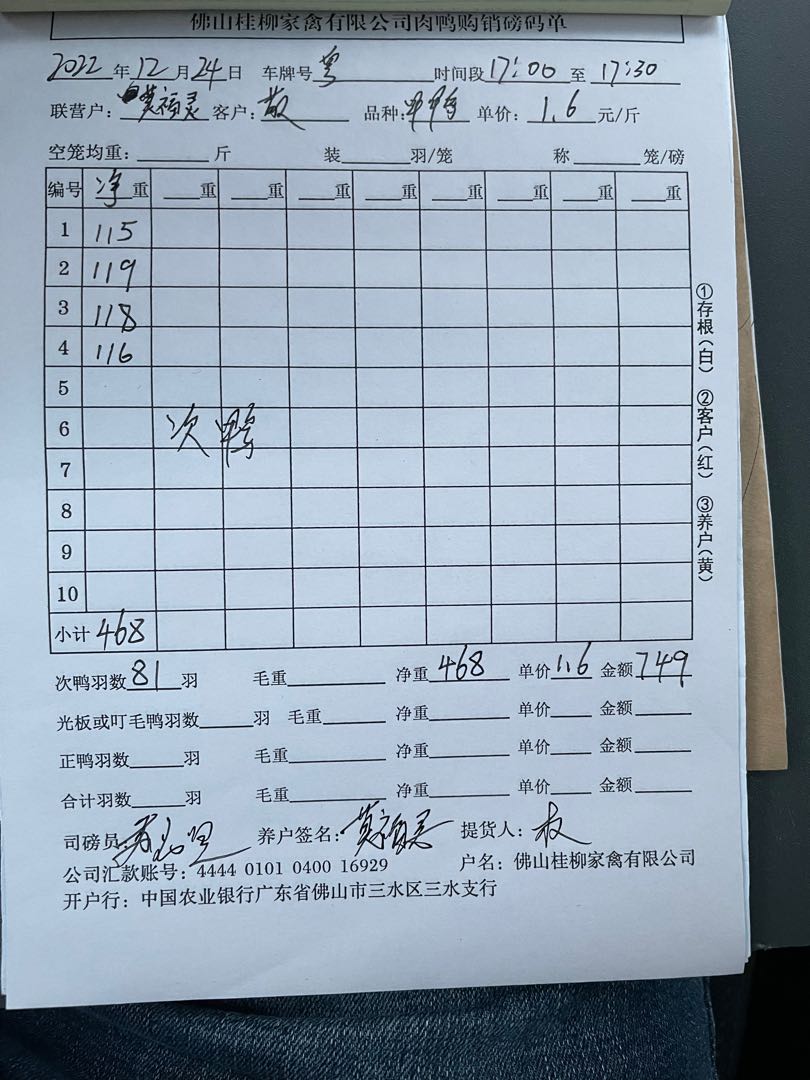 佛山桂柳家禽有限公司肉鸭购销磅码单
2022年12月24日 车牌号粤 时间段17:00至17:30
联营户:莫福灵 客户:散 品种: 单价:1.6元/斤
空笼均重:____斤 装____羽/笼 称____笼/磅
编号 净重 __重 __重 __重 __重 __重 __重 __重 __重
1 115
2 119
3 118
4 116
5
6 次鸭
7
8
9
10
小计 468
次鸭羽数81羽 毛重____ 净重468 单价1.6 金额749
光板或叮毛鸭羽数____羽 毛重____ 净重____ 单价____ 金额____
正鸭羽数____羽 毛重____ 净重____ 单价____ 金额____
合计羽数____羽 毛重____ 净重____ 单价____ 金额____
司磅员: 养户签名:莫福灵 提货人:
公司汇款账号:4444 0101 0400 16929 户名:佛山桂柳家禽有限公司
开户行:中国农业银行广东省佛山市三水区三水支行
①存根(白) ②客户(红) ③养户(黄)